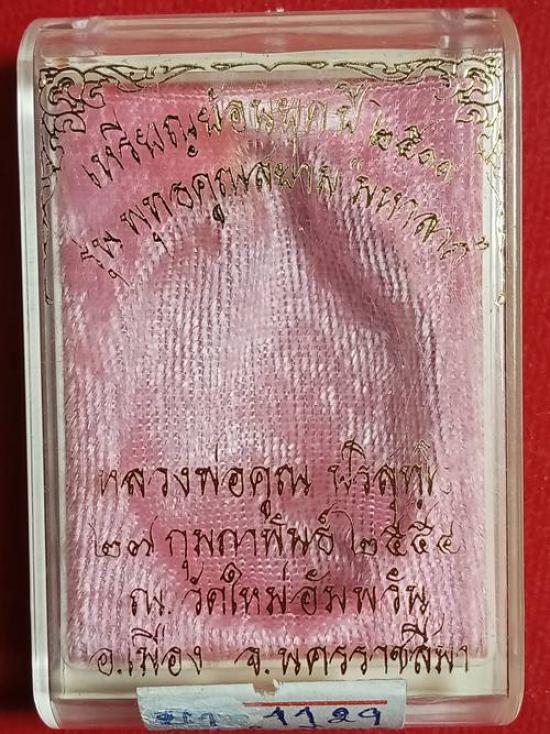 เหรียญย้อนยุค ปี ๒๕๑๗
รุ่น พุทธคูณสยาม มหาลาภ
หลวงพ่อคูณ ปริสุทฺโธ
๒๗ กุมภาพันธ์ ๒๕๕๔
ณ. วัดใหม่อัมพวัน
อ.เมือง จ.นครราชสีมา
1129